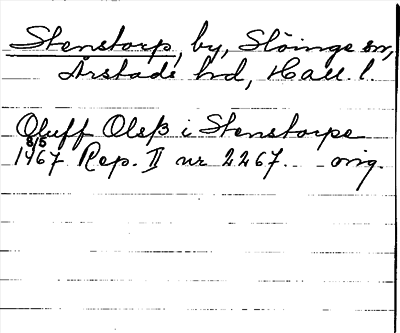 Stenstorp, by, Slöinge sn,
Årstads hd, Hall l.
Oluff Olsß i Stenstorpe
8/5
1467 Rep. II nr 2267. orig.